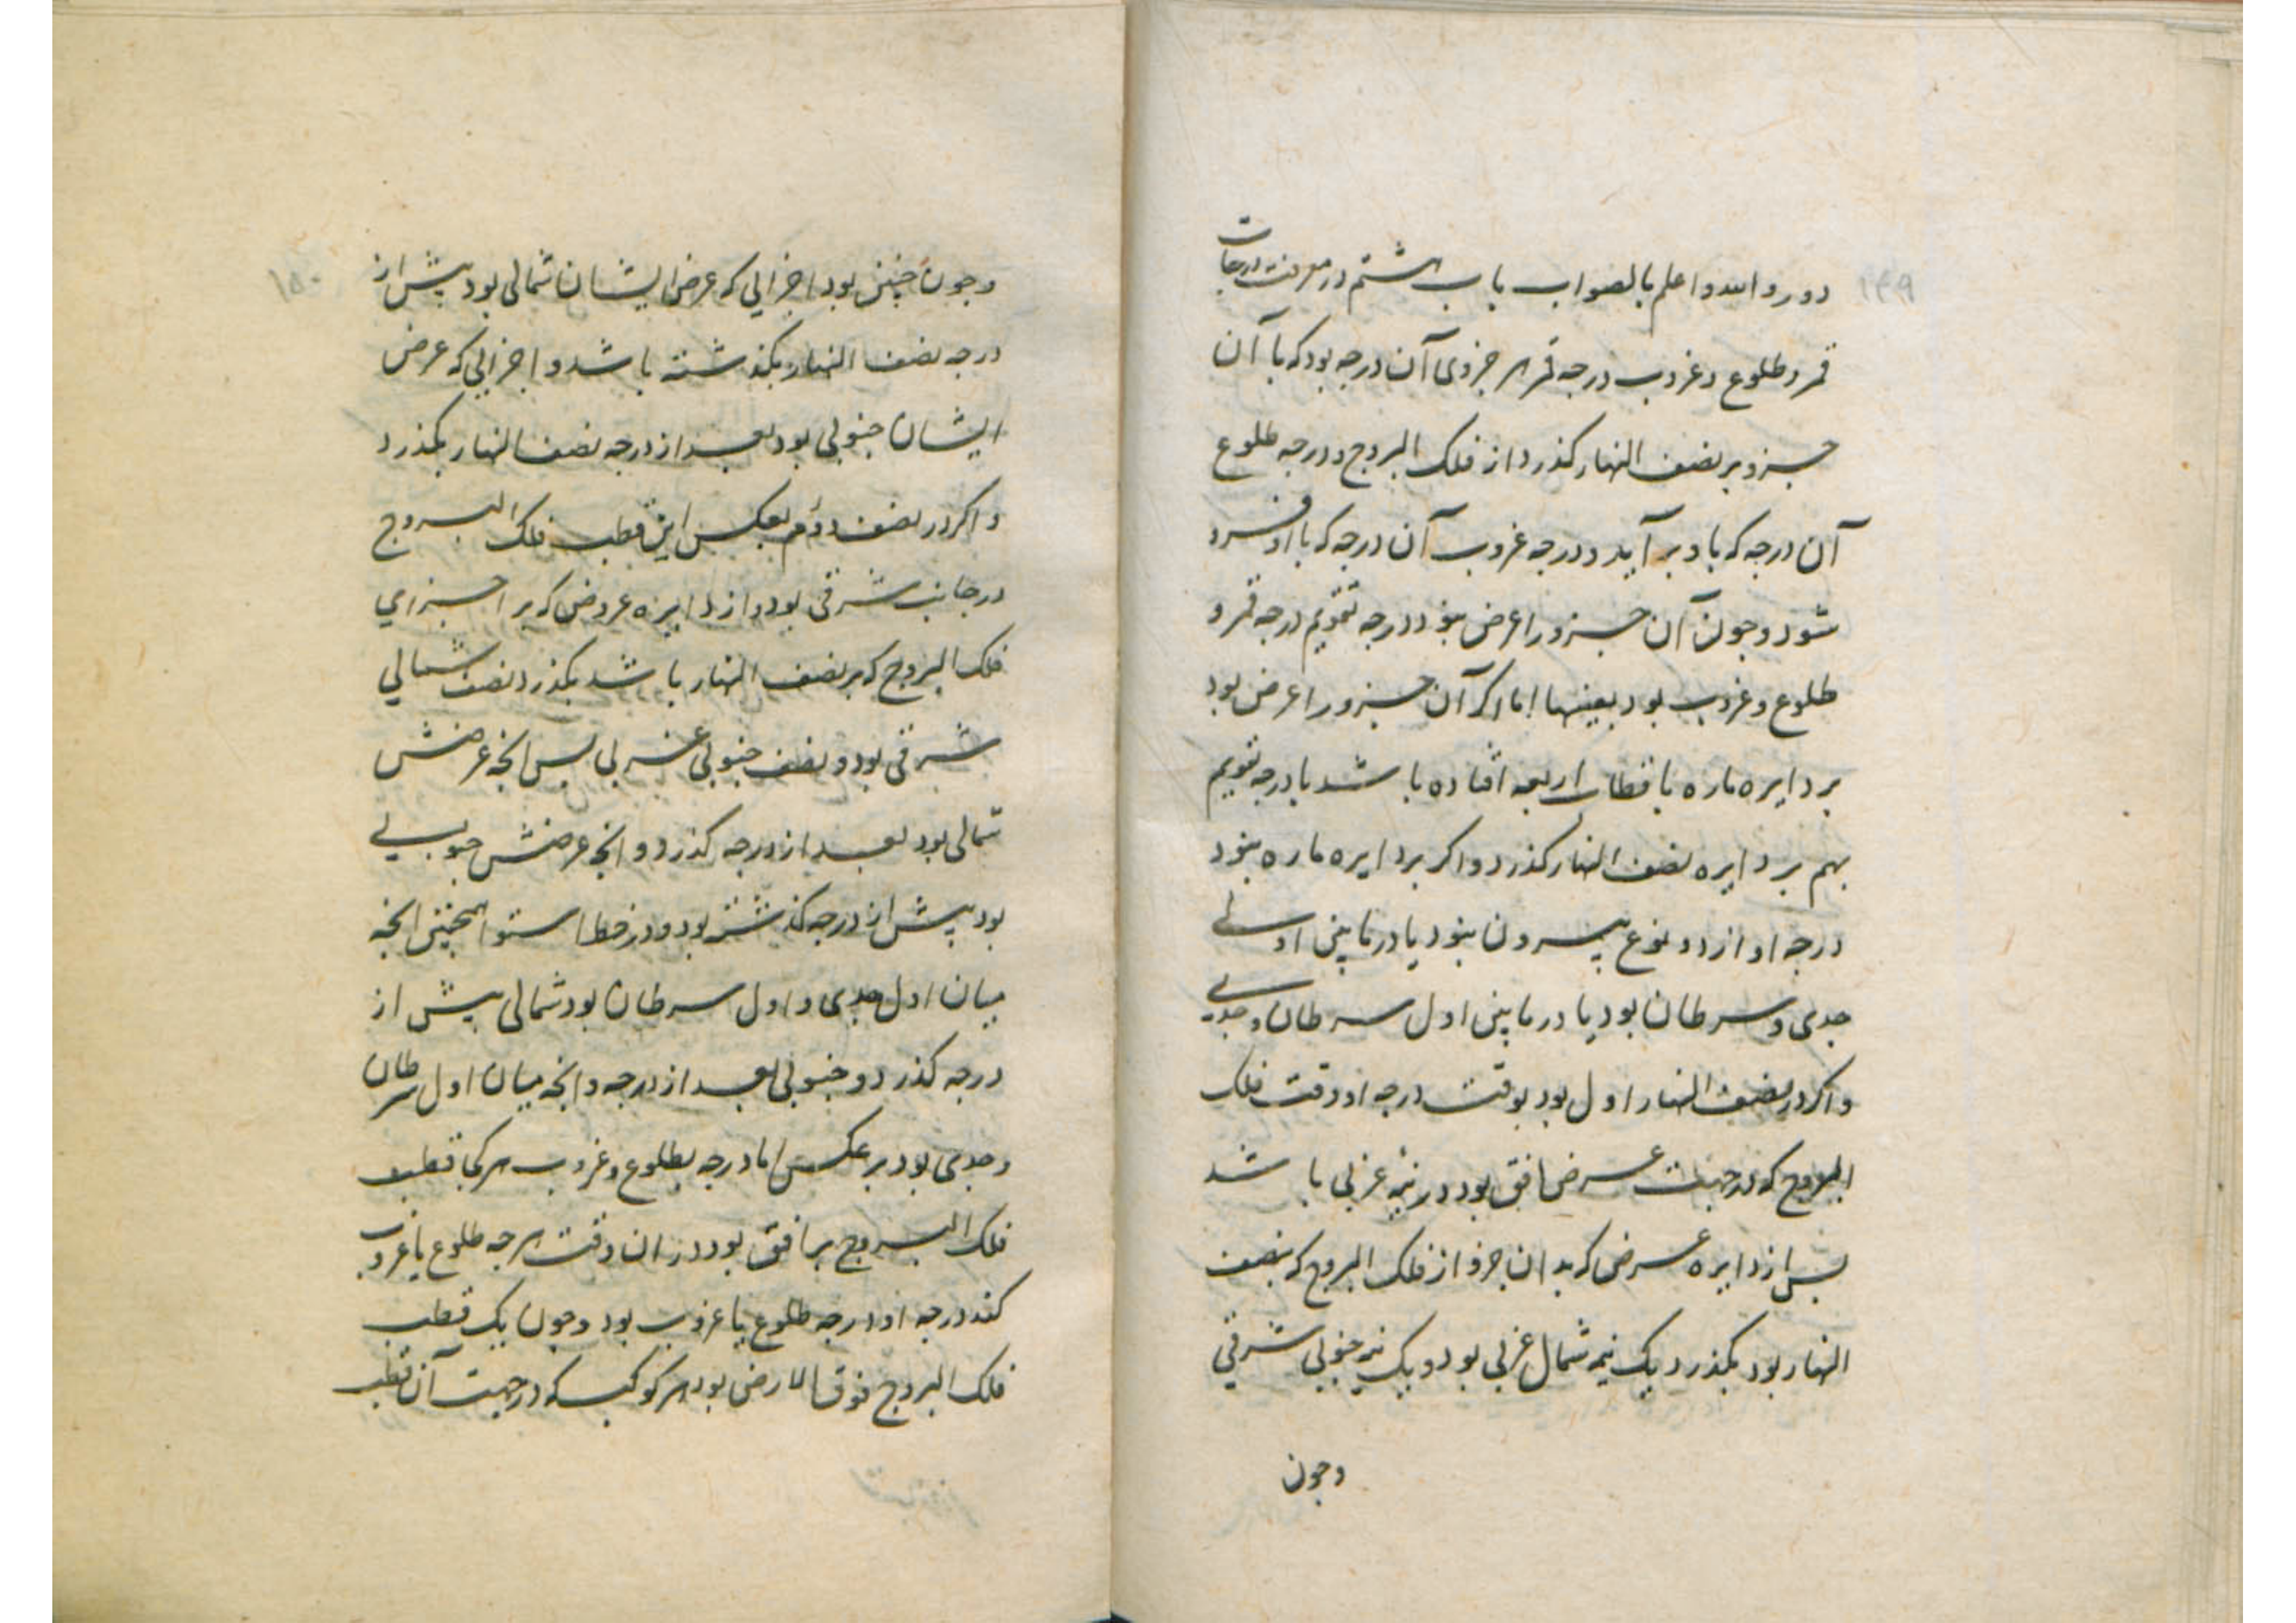 ۱۴۹
دور والله واعلم بالصواب باب هشتم در معرفت درجات
قمر و طلوع و غروب درجه قمر هر جزوی آن درجه بود که با آن
جزو بر نصف النهار کذرد از فلک البروج و درجه طلوع
آن درجه که با او بر آید و درجه غروب آن درجه که با او فرو
شود و چون آن جزو را عرض نبود درجه تقویم درجه قمر و
طلوع و غروب بود بعینها اما اکر آن جزو را عرض بود
بر دایره ماره باقطاب اربعه افتاده باشد با درجه تقویم
بهم بر دایره نصف النهار کذرد و اکر بر دایره ماره نبود
درجه او از دو نوع بیرون نبود یا در مابین اول
جدی و سرطان بود یا در مابین اول سرطان و جدی
و اکر در نصف النهار اول بود بوقت درجه او وقت فلک
البروج که در جهت عرض افق بود در نیمه غربی باشد
پس از دایره عرض که بدان جزو از فلک البروج که بنصف
النهار بود بکذرد یک نیمه شمال غربی بود و یک نیمه جنوبی شرقی
وچون
۱۵۰
وچون چنین بود اجزایی که عرض ایشان شمالی بود پیش از
درجه نصف النهار بکذشته باشد و اجزایی که عرض
ایشان جنوبی بود بعد از درجه نصف النهار بکذرد
و اکر در نصف دوم بعکس این قطب فلک البروج
در جانب شرقی بود و از دایره عروض که بر اجزای
فلک البروج که بر نصف النهار باشد بکذرد نصف شمالی
شرقی بود و نصف جنوبی غربی پس انچه عرضش
شمالی بود بعد از درجه کذرد و انچه عرضش جنوبی
بود پیش از درجه کذشته بود و در خط استوا همچنین انچه
میان اول جدی و اول سرطان بود شمالی پیش از
درجه کذرد و جنوبی بعد از درجه و انچه میان اول سرطان
و جدی بود بر عکس اما درجه بطلوع و غروب هرکجا قطب
فلک البروج بر افق بود در ان وقت هرچه طلوع یا غروب
کند درجه او درجه طلوع یا غروب بود و چون یک قطب
فلک البروج فوق الارض بود هر کوکب که در جهت آن قطب